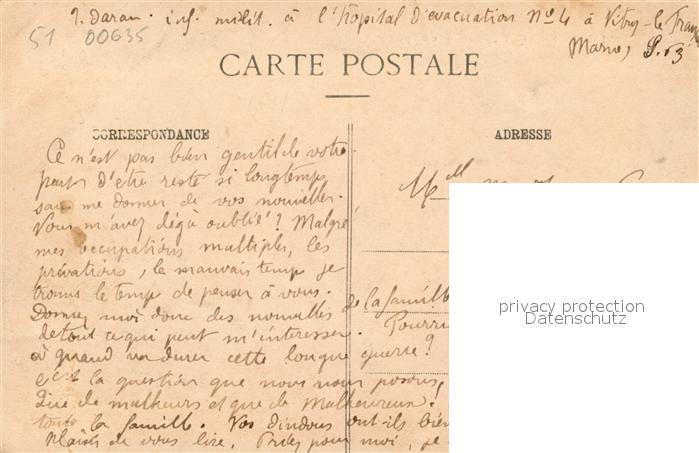 J. Daran. inf. milit. à l'hôpital d'évacuation No 4 à Vitry-le-Franç
Marne, S. 63
51 00635
CARTE POSTALE
CORRESPONDANCE
ADRESSE
Ce n'est pas bien gentil de votre
part d'etre resté si longtemps
sans me donner de vos nouvelles.
Vous m'avez déjà oublié? Malgré
mes occupations multiples, les
privations, le mauvais temps je
trouve le temps de penser à vous.
Donnez moi donc des nouvelles de la famille
de tout ce qui peut m'interesser. Pourri
à quand va durer cette longue guerre?
c'est la question que nous nous posons,
Que de malheurs et que de Malheureux!
toute la famille. Vos dindons ont-ils bien
plaisir de vous lire. Priez pour moi, je
Mlle
privacy protection
Datenschutz